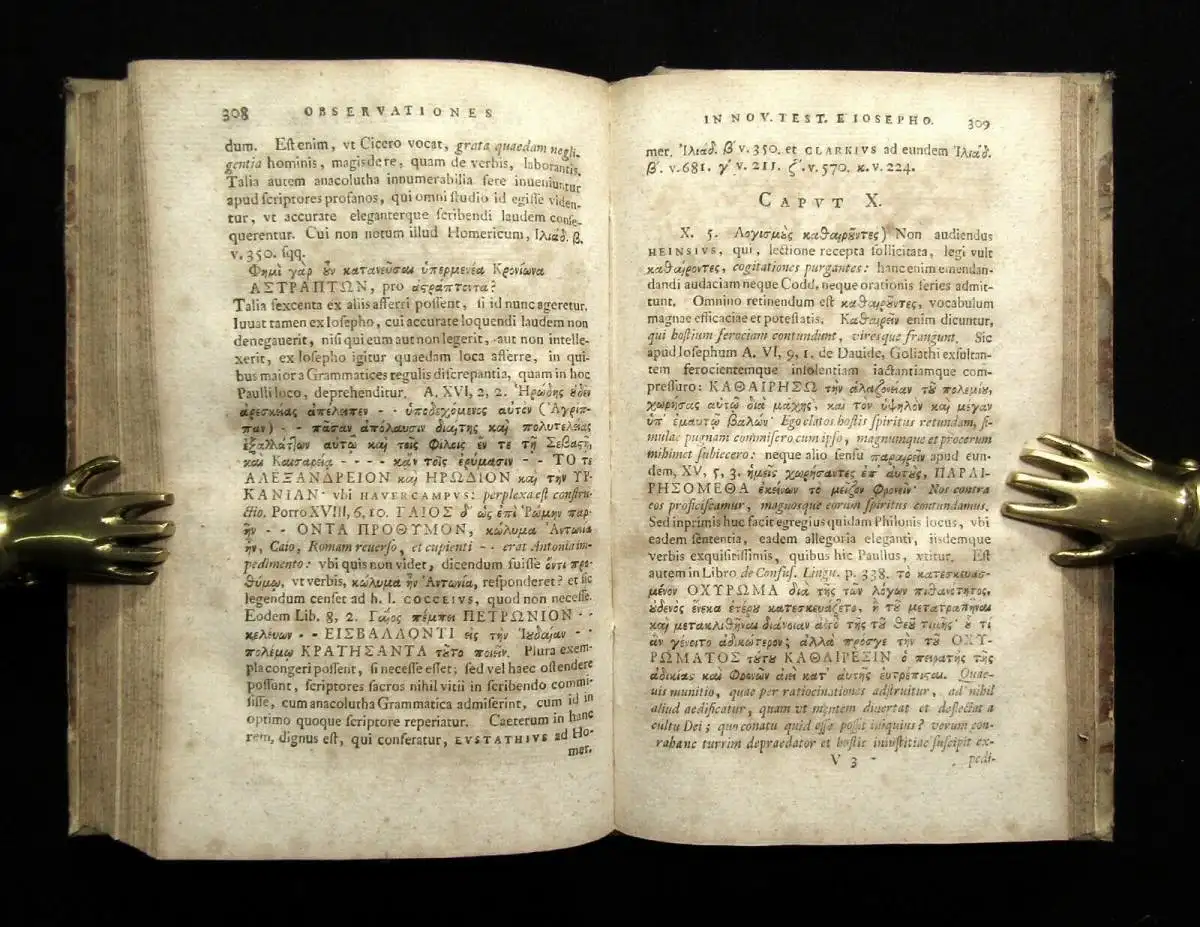 308 OBSERVATIONES
dum. Est enim, vt Cicero vocat, grata quaedam negli-
gentia hominis, magis de re, quam de verbis, laborantis.
Talia autem anacolutha innumerabilia fere inueniuntur
apud scriptores profanos, qui omni studio id egisse viden-
tur, vt accurate eleganterque scribendi laudem conse-
querentur. Cui non notum illud Homericum, Ιλιάδ. β.
v. 350. sqq.
Φημὶ γὰρ ὂν κατανεῦσαι ὑπερμενέα Κρονίωνα
ΑΣΤΡΑΠΤΩΝ, pro ἀςράπτοντα?
Talia sexcenta ex aliis afferri possent, si id nunc ageretur.
Iuuat tamen ex Iosepho, cui accurate loquendi laudem non
denegauerit, nisi qui eum aut non legerit, aut non intelle-
xerit, ex Iosepho igitur quaedam loca afferre, in qui-
bus maior a Grammatices regulis discrepantia, quam in hoc
Paulli loco, deprehenditur. A. XVI, 2, 2. Ἡρώδης ȣ̓δὲν
ἀρεσκείας ἀπέλειπεν - - ὑποδεχόμενος αὐτὸν (Ἀγρίπ-
παν) - - πᾶσαν ἀπόλαυσιν διαίτης καὶ πολυτελείας
ἐξαλλάτων αὐτῷ καὶ τοῖς Φίλοις ἔν τε τῇ Σεβαςῇ,
καὶ Καισαρείᾳ - - - - κἀν τοῖς ἐρύμασιν - - ΤΟ τε
ΑΛΕΞΑΝΔΡΕΙΟΝ καὶ ΗΡΩΔΙΟΝ καὶ την ΥΡ-
ΚΑΝΙΑΝ· vbi HAVERCAMPVS: perplexa est constru-
ctio. Porro XVIII, 6, 10. ΓΑΙΟΣ δ' ὡς ἐπὶ Ῥώμην παρ-
ῆν - - ΟΝΤΑ ΠΡΟΘΥΜΟΝ, κώλυμα Ἀντωνία
ἦν, Caio, Romam reuerso, et cupienti - - erat Antonia im-
pedimento: vbi quis non videt, dicendum fuisse ὄντι προ-
θύμῳ, vt verbis, κώλυμα ἦν Ἀντωνία, responderet? et sic
legendum censet ad h. l. COCCEIVS, quod non necesse.
Eodem Lib. 8, 2. Γάϊος πέμπει ΠΕΤΡΩΝΙΟΝ - -
κελεύων - - ΕΙΣΒΑΛΛΟΝΤΙ εἰς τὴν Ἰουδαίαν - -
πολέμῳ ΚΡΑΤΗΣΑΝΤΑ τȣ̃το ποιεῖν. Plura exem-
pla congeri possent, si necesse esset; sed vel haec ostendere
possunt, scriptores sacros nihil vitii in scribendo commi-
sisse, cum anacolutha Grammatica admiserint, cum id in
optimo quoque scriptore reperiatur. Caeterum in hanc
rem, dignus est, qui conferatur, EVSTATHIVS ad Ho-
mer.
IN NOV. TEST. E IOSEPHO. 309
mer. Ἰλιάδ. β v. 350. et CLARKIVS ad eundem Ἰλιάδ.
β. v. 681. γ v. 211. ζ. v. 570. κ. v. 224.
CAPVT X.
X. 5. Λογισμὸς καθαιρȣ̃ντες) Non audiendus
HEINSIVS, qui, lectione recepta sollicitata, legi vult
καθαίροντες, cogitationes purgantes: hanc enim emendan-
dandi audaciam neque Codd. neque orationis series admit-
tunt. Omnino retinendum est καθαιρȣ̃ντες, vocabulum
magnae efficaciae et potestatis. Καθαιρεῖν enim dicuntur,
qui hostium ferociam contundunt, viresque frangunt. Sic
apud Iosephum A. VI, 9, 1. de Dauide, Goliathi exsultan-
tem ferocientemque insolentiam iactantiamque com-
pressuro: ΚΑΘΑΙΡΗΣΩ τὴν ἀλαζονείαν τȣ̃ πολεμίȣ,
χωρήσας αὐτῷ διὰ μάχης, καὶ τὸν ὑψηλὸν καὶ μέγαν
ὑπ' ἐμαυτῷ βαλών· Ego elatos hostis spiritus retundam, si-
mulac pugnam commisero cum ipso, magnumque et procerum
mihimet subiecero: neque alio sensu παραιρεῖν apud eun-
dem, XV, 5, 3. ἡμεῖς χωρήσαντες ἐπ' αὐτȣ̀ς, ΠΑΡΑΙ-
ΡΗΣΟΜΕΘΑ ἐκείνων τὸ μεῖζον Φρονεῖν· Nos contra
eos proficiscamur, magnosque eorum spiritus contundamus.
Sed inprimis huc facit egregius quidam Philonis locus, vbi
eadem sententia, eadem allegoria eleganti, iisdemque
verbis exquisitissimis, quibus hic Paullus, vtitur. Est
autem in Libro de Confus. Lingu. p. 338. τὸ κατεσκευασ-
μένον ΟΧΥΡΩΜΑ διὰ τῆς τῶν λόγων πιθανότητος,
ȣ̓δενὸς ἕνεκα ἑτέρȣ κατεσκευάζετο, ἢ τȣ̃ μετατραπῆναι
καὶ μετακλιθῆναι διάνοιαν ἀπὸ τῆς τȣ̃ θεȣ̃ τιμῆς· ȣ̃ τί
ἂν γένοιτο ἀδικώτερον; ἀλλὰ πρόσγε τὴν τȣ̃ ΟΧΥ-
ΡΩΜΑΤΟΣ τȣ́τȣ ΚΑΘΑΙΡΕΣΙΝ ὁ πειρατὴς τῆς
ἀδικίας καὶ Φονῶν ἀεὶ κατ' αὐτῆς εὐτρέπισαι. Quae-
uis munitio, quae per ratiocinationes adstruitur, ad nihil
aliud aedificatur, quam vt mentem diuertat et deflectat a
cultu Dei; quo conatu quid esse possit iniquius? verum con-
tra hanc turrim depraedator et hostis iniustitiae suscipit ex-
V 3 pedi-